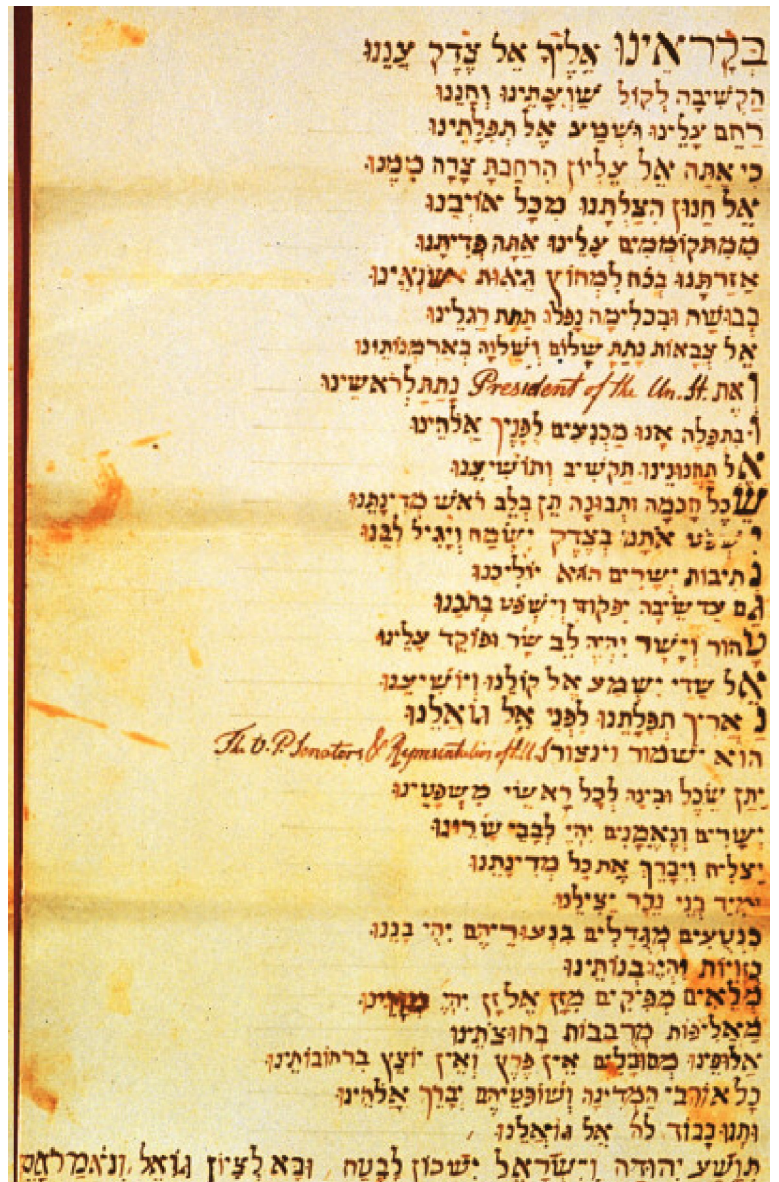 בְּקָרְאֵינוּ אֵלֶיךָ אֵל צֶדֶק עֲנֵנוּ
הַקְשִׁיבָה לְקוֹל שַׁוְעָתֵינוּ וְחָנֵנוּ
רַחֵם עָלֵינוּ וּשְׁמַע אֶל תְּפִלָּתֵינוּ
כִּי אַתָּה אֵל עֶלְיוֹן הִרְחַבְתָּ צָרָה מִמֶנוּ
אֵל חַנוּן הִצַלְתָּנוּ מִכָּל אוֹיְבֵנוּ
מִמִתְקוֹמְמִים עָלֵינוּ אַתָּה פְּדִיתָנוּ
אַזַרְתָּנוּ בְּכֹחַ לִמְחוֹץ גֵיאוּת שׂנְאֵינוּ
בְּבוּשָׁת וּבִכְלִימָה נָפְלוּ תַּחַת רַגְלֵינוּ
אֵל צְבָאוֹת נָתַתָּ שָׁלוֹם וְשַׁלְוָה בְּאַרְמְנוֹתֵינוּ
וְאֶת President of the Un. St. נָתַתָּ לְרֹאשֵׁינוּ
וּבִתְפִלָּה אָנוּ מַכְנִעִים לְפָנֶיךָ אֱלֹהֵינוּ
אֶל תַּחֲנוּנֵינוּ תַּקְשִׁיב וְתוֹשִׁיעֵנוּ
שֵׂכֶל חָכְמָה וּתְבוּנָה תֵּן בְּלֵב רֹאשׁ מְדִינָתֵנוּ
יִשְׁפֹּט אֹתָנוּ בְּצֶדֶק יִשְׂמַח וְיָגִיל לִבֵּנוּ
נְתִיבוֹת יְשָׁרִים הוּא יוֹלִיכֵנוּ
גַם עַד שֵׂיבָה יִפְקוֹד וְיִשְׁפֹּט בְּתֹכֵנוּ
טָהוֹר וְיָשָׁר יִהְיֶה לֵב שַׂר וּפוֹקֵד עָלֵינוּ
אֵל שַׁדַי יִשְׁמַע אֶל קוֹלֵנוּ וְיוֹשִׁיעֵנוּ
נַאֲרִיךְ תְּפִלָּתֵנוּ לִפְנֵי אֵל גוֹאֲלֵנוּ
הוּא יִשְׁמוֹר וְיִנְצוֹר The V. P. Senators & Representatives of the U S
יִתֵּן שֵׂכֶל וּבִינָה לְכָל רָאשֵׁי מִשְׁפָּטֵינוּ
יְשָׁרִים וְנֶאֱמָנִים יְהִי לְבָבֵי שָׂרֵינוּ
יַצְלִיחַ וִיבָרֵךְ אֶת כָּל מְדִינָתֵנוּ
מִיַד בְּנֵי נֵכָר יַצִילֵנוּ
כִּנְטִעִים מְגֻדָלִים בִּנְעוּרֵיהֶם יִהְיוּ בָנֵנוּ
כְּזָוִיוֹת יִהְיוּ בְּנוֹתֵינוּ
מְלֵאִים מְפִיקִים מִזַן אֶל זַן יִהְיוּ מְזָוֵינוּ
מַאֲלִיפוֹת מְרֻבָּבוֹת בְּחוּצֹתֵינוּ
אַלּוּפֵינוּ מְסוּבָּלִים אֵין פֶּרֶץ וְאֵין יוֹצֵץ בִּרְחוֹבוֹתֵינוּ
כָּל אוֹהֲבֵי הַמְדִינָה וְשׁוֹפְטֵיהֶם יְבָרֵךְ אֱלֹהֵינוּ
וּתְנוּ כָּבוֹד לה׳ אֵל גוֹאֲלֵנוּ
תִּוָּשַׁע יְהוּדָה וְיִשְׂרָאֵל יִשְׁכּוֹן לָבֶטַח, וּבָא לְצִיוֹן גוֹאֵל, וְנֹאמַר אָמֵן